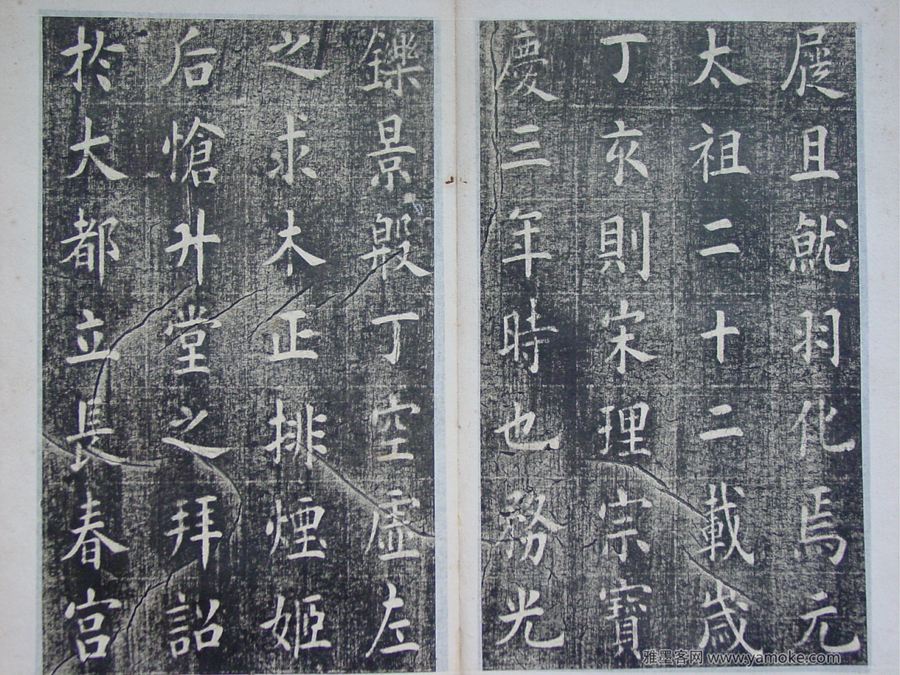 屣且魷羽化焉元
太祖二十二載歲
丁亥則宋理宗寶
慶三年時也務光
鑠景毀丁空虛左
之求木正排煙姬
后愴升堂之拜詔
於大都立長春宮
雅墨客网 www.yamoke.com